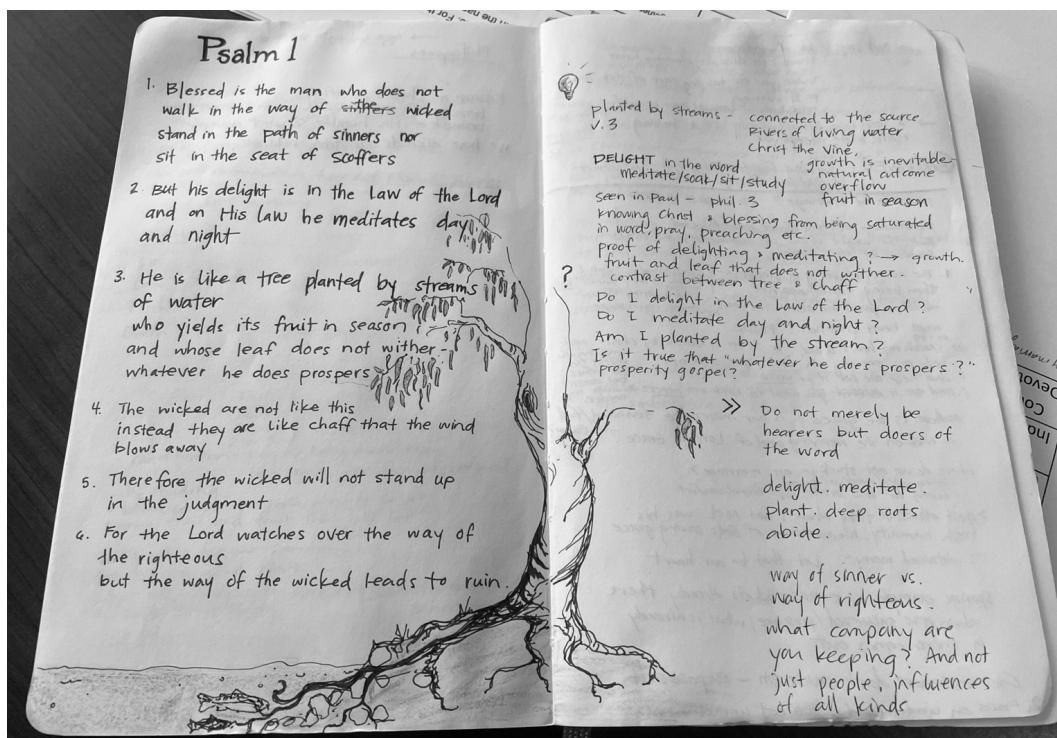 Psalm 1
1. Blessed is the man who does not
walk in the way of wicked
stand in the path of sinners nor
sit in the seat of scoffers
2. But his delight is in the Law of the Lord
and on His law he meditates day
and night
3. He is like a tree planted by streams
of water
who yields its fruit in season
and whose leaf does not wither -
whatever he does prospers
4. The wicked are not like this
instead they are like chaff that the wind
blows away
5. Therefore the wicked will not stand up
in the judgment
6. For the Lord watches over the way of
the righteous
but the way of the wicked leads to ruin.
planted by streams - connected to the source
v.3 Rivers of living water
Christ the Vine
DELIGHT in the word growth is inevitable
meditate/soak/sit/study natural outcome
overflow
seen in Paul - phil. 3 fruit in season
knowing Christ & blessing from being saturated
in word, pray, preaching etc.
proof of delighting & meditating? → growth.
fruit and leaf that does not wither.
? contrast between tree & chaff
Do I delight in the Law of the Lord?
Do I meditate day and night?
Am I planted by the stream?
Is it true that "whatever he does prospers?"
prosperity gospel?
>> Do not merely be
hearers but doers of
the word
delight. meditate.
plant. deep roots
abide.
way of sinner vs.
way of righteous.
what company are
you keeping? And not
just people, influences
of all kinds